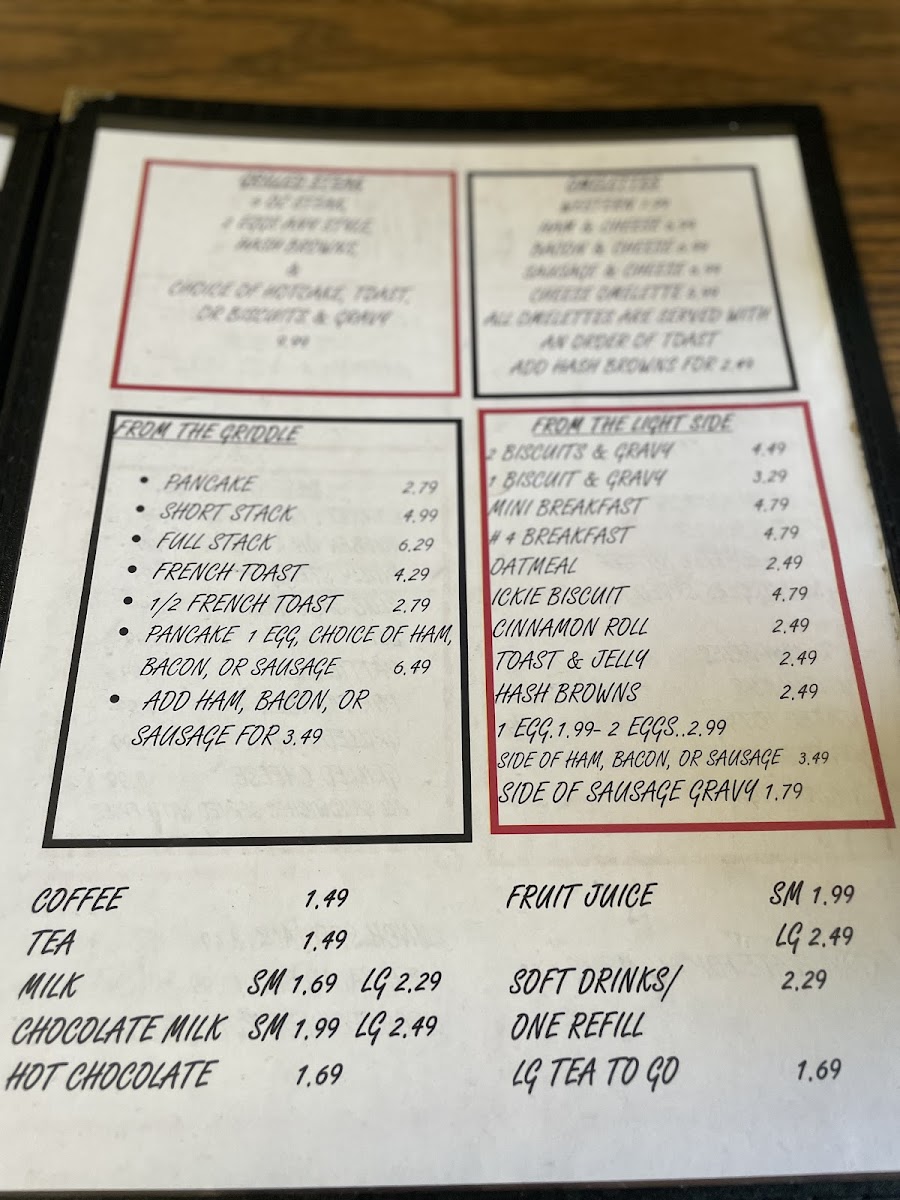 GRILLED STEAK
OZ STEAK,
2 EGGS ANY STYLE,
HASH BROWNS,
&
CHOICE OF HOTCAKE, TOAST,
OR BISCUITS & GRAVY
9.99
OMELETTES
WESTERN
HAM & CHEESE
BACON & CHEESE
SAUSAGE & CHEESE
CHEESE OMELETTE
ALL OMELETTES ARE SERVED WITH
AN ORDER OF TOAST
ADD HASH BROWNS FOR 2.49
FROM THE GRIDDLE
• PANCAKE 2.79
• SHORT STACK 4.99
• FULL STACK 6.29
• FRENCH TOAST 4.29
• 1/2 FRENCH TOAST 2.79
• PANCAKE 1 EGG, CHOICE OF HAM,
BACON, OR SAUSAGE 6.49
• ADD HAM, BACON, OR
SAUSAGE FOR 3.49
FROM THE LIGHT SIDE
2 BISCUITS & GRAVY 4.49
1 BISCUIT & GRAVY 3.29
MINI BREAKFAST 4.79
# 4 BREAKFAST 4.79
OATMEAL 2.49
ICKIE BISCUIT 4.79
CINNAMON ROLL 2.49
TOAST & JELLY 2.49
HASH BROWNS 2.49
1 EGG.1.99- 2 EGGS..2.99
SIDE OF HAM, BACON, OR SAUSAGE 3.49
SIDE OF SAUSAGE GRAVY 1.79
COFFEE 1.49
TEA 1.49
MILK SM 1.69 LG 2.29
CHOCOLATE MILK SM 1.99 LG 2.49
HOT CHOCOLATE 1.69
FRUIT JUICE SM 1.99
LG 2.49
SOFT DRINKS/ 2.29
ONE REFILL
LG TEA TO GO 1.69